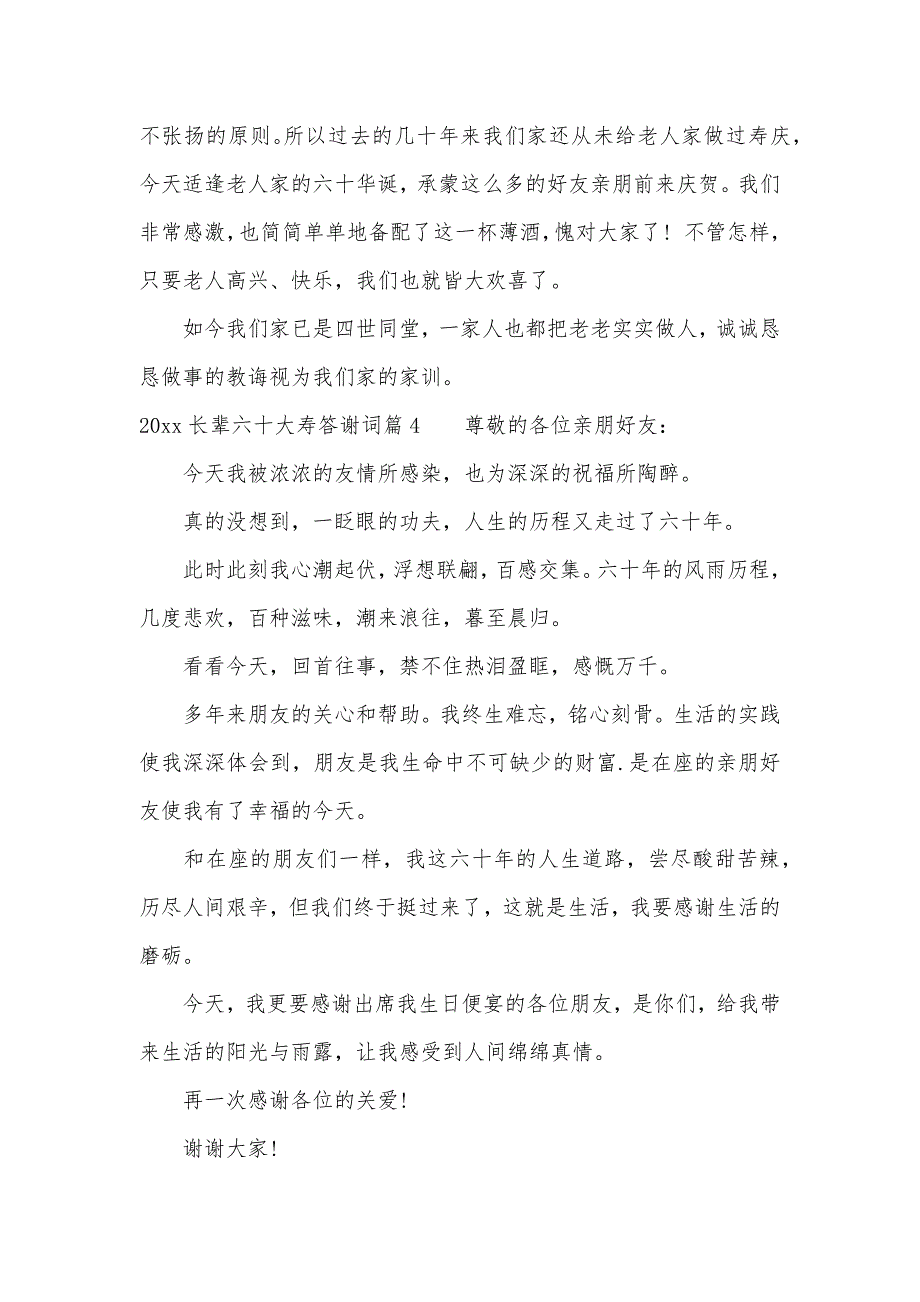 不张扬的原则。所以过去的几十年来我们家还从未给老人家做过寿庆，
今天适逢老人家的六十华诞，承蒙这么多的好友亲朋前来庆贺。我们
非常感激，也简简单单地备配了这一杯薄酒，愧对大家了! 不管怎样，
只要老人高兴、快乐，我们也就皆大欢喜了。
如今我们家已是四世同堂，一家人也都把老老实实做人，诚诚恳
恳做事的教诲视为我们家的家训。
20xx 长辈六十大寿答谢词篇 4　　尊敬的各位亲朋好友：
今天我被浓浓的友情所感染，也为深深的祝福所陶醉。
真的没想到，一眨眼的功夫，人生的历程又走过了六十年。
此时此刻我心潮起伏，浮想联翩，百感交集。六十年的风雨历程，
几度悲欢，百种滋味，潮来浪往，暮至晨归。
看看今天，回首往事，禁不住热泪盈眶，感慨万千。
多年来朋友的关心和帮助。我终生难忘，铭心刻骨。生活的实践
使我深深体会到，朋友是我生命中不可缺少的财富.是在座的亲朋好
友使我有了幸福的今天。
和在座的朋友们一样，我这六十年的人生道路，尝尽酸甜苦辣，
历尽人间艰辛，但我们终于挺过来了，这就是生活，我要感谢生活的
磨砺。
今天，我更要感谢出席我生日便宴的各位朋友，是你们，给我带
来生活的阳光与雨露，让我感受到人间绵绵真情。
再一次感谢各位的关爱!
谢谢大家!